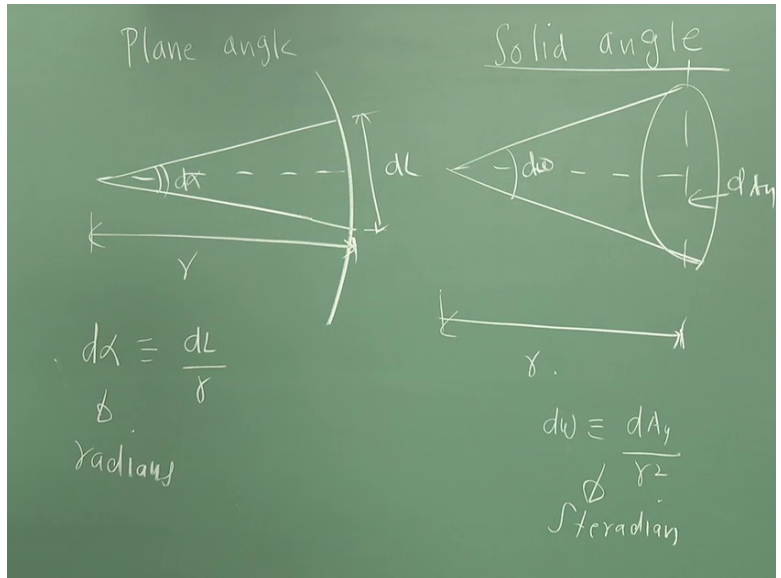 Plane angle
dα
dL
r
dα ≡ dL / r
radians
Solid angle
dω
dAn
r.
dω ≡ dAn / r2
Steradian